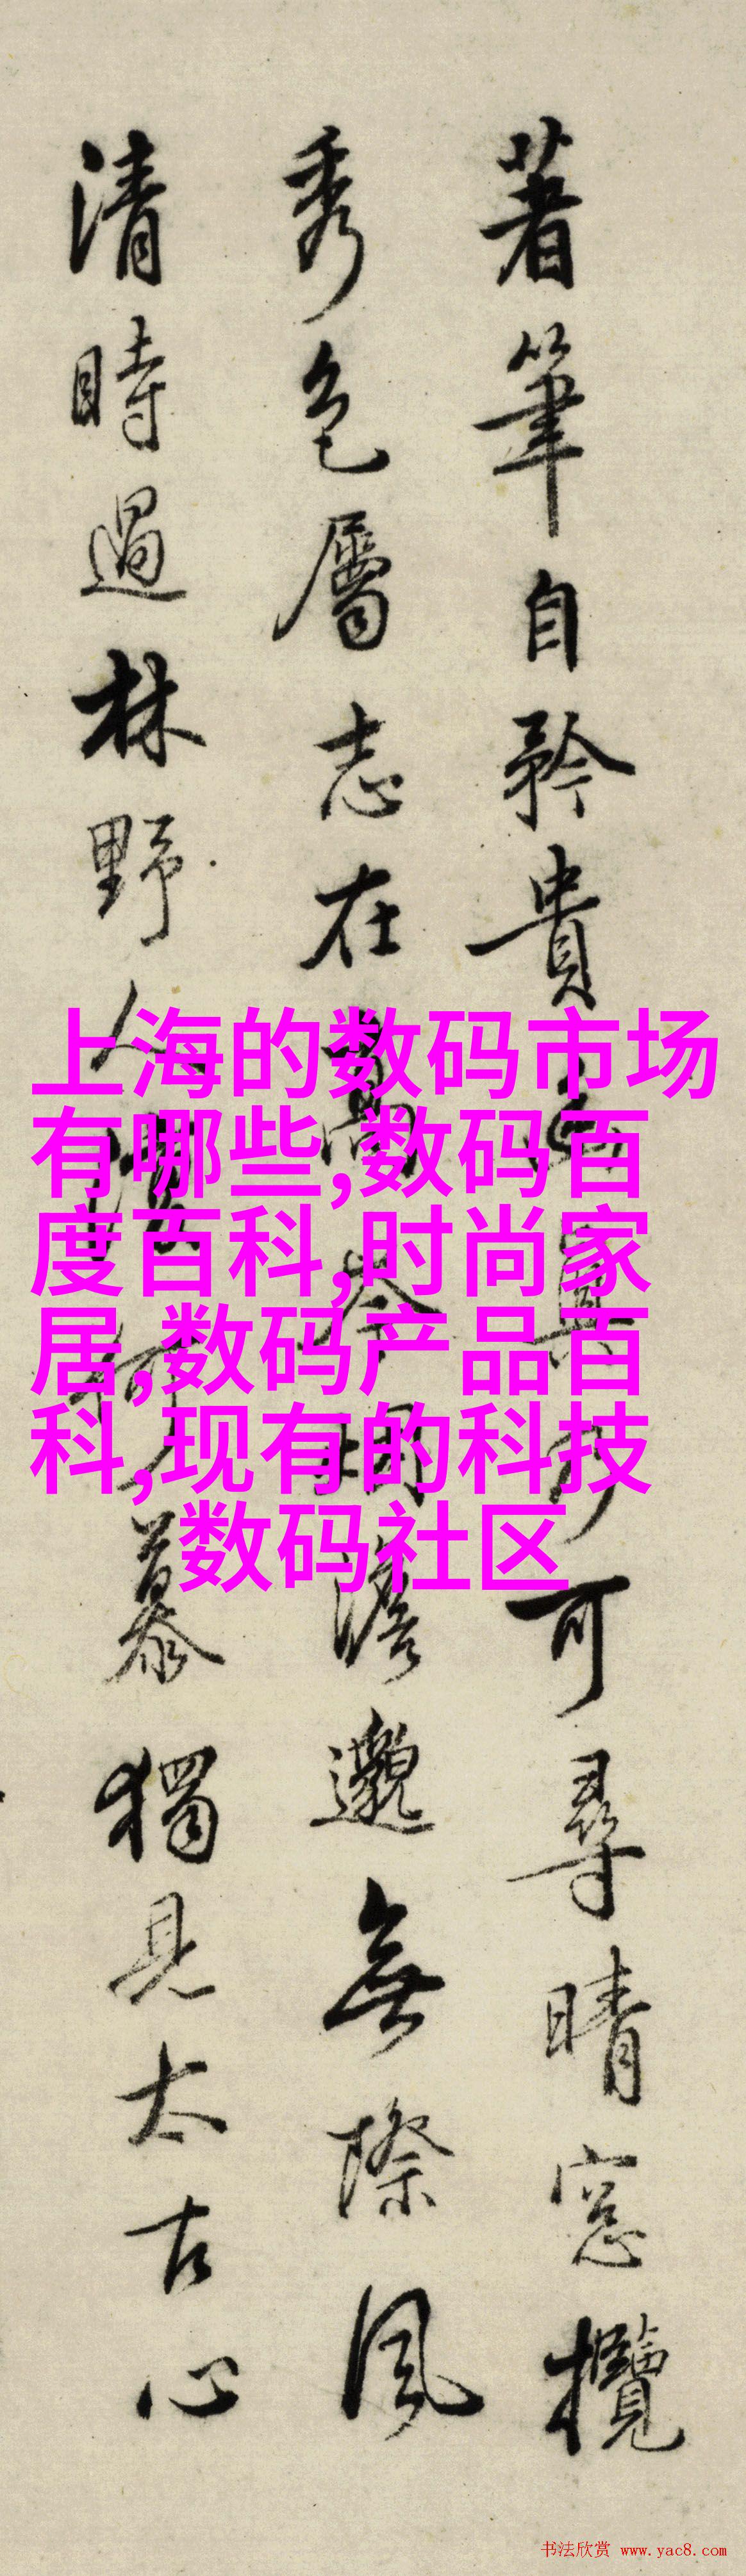 著筆自矜貴
可尋晴窓攬
秀色屬志在高岑
澹邈無際風
清時過林野人
慕獨見太古心
上海的数码市场
有哪些,数码百
度百科,时尚家
居,数码产品百
科,现有的科技
数码社区
书法欣赏 www.yac8.com